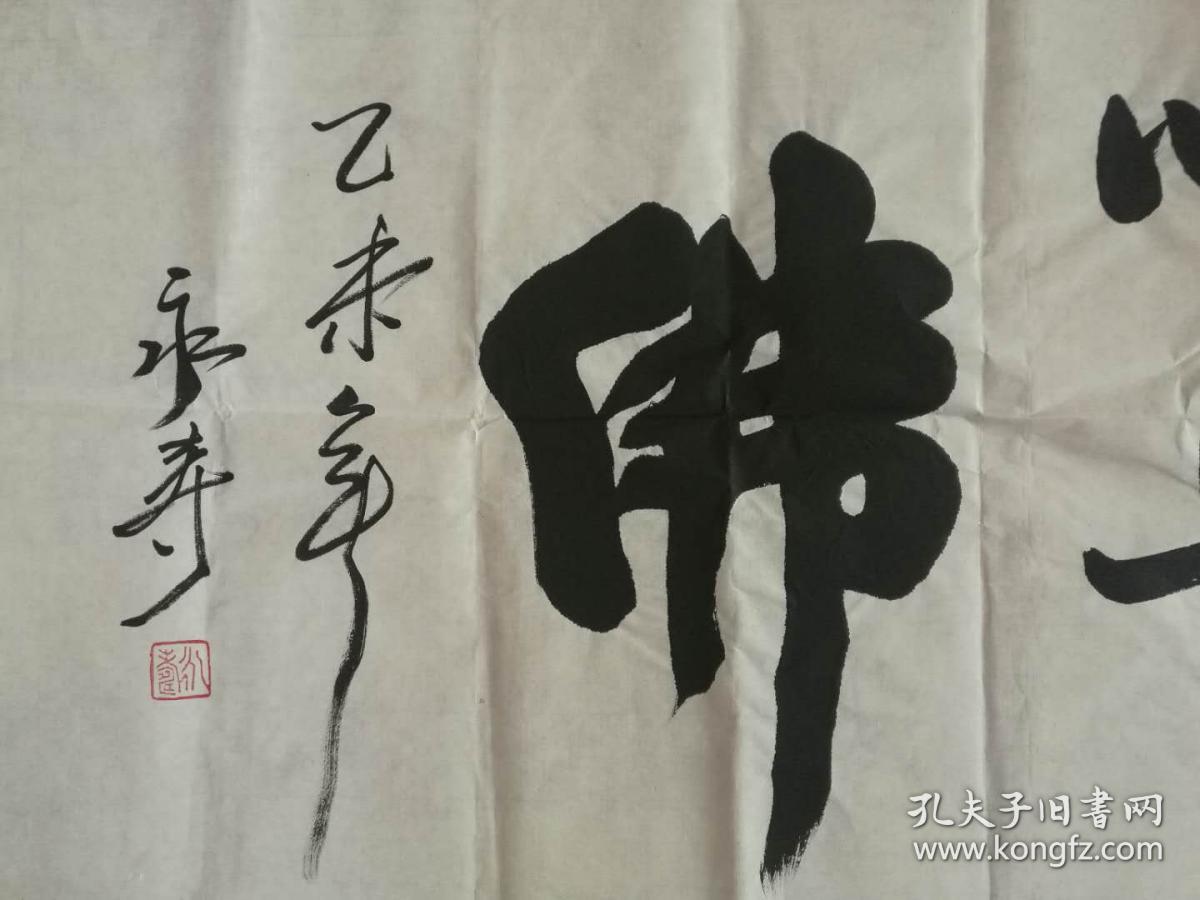 佛
乙未年
永寿
永壽
孔夫子旧書网
www.kongfz.com